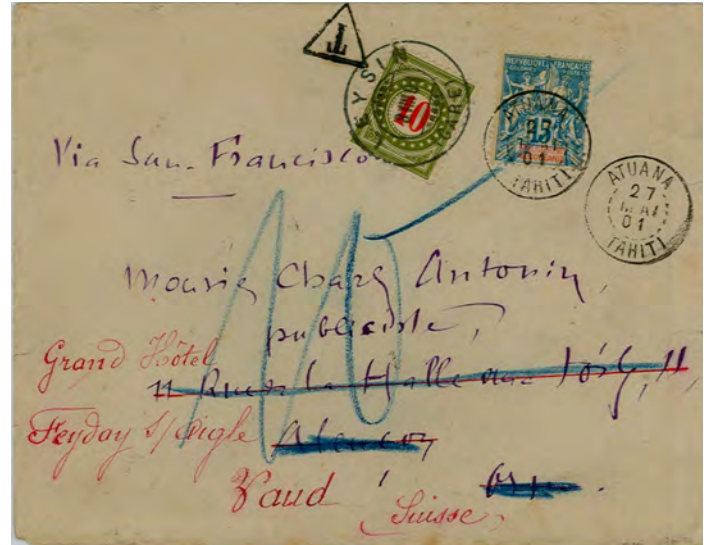 T
LEYSIN GARE
10
REPUBLIQUE FRANÇAISE
15
ATUANA
MAI
01
TAHITI
ATUANA
27
MAI
01
TAHITI
Via San-Francisco
10
Charles Antonin,
publiciste,
Grand Hôtel
11 Rue de la Halle aux 11,
Feyday s/ Aigle Alençon
Vaud
Suisse